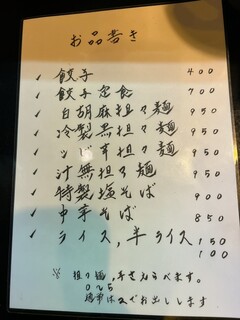 お品書き
✓ 餃子 400
✓ 餃子定食 700
✓ 白胡麻担々麺 950
✓ 冷製黒担々麺 950
✓ 担々麺 950
✓ 汁無担々麺 950
✓ 特製塩そば 900
✓ 中辛そば 850
✓ ライス,半ライス 150
100
※ 担々麺、辛さえらべます。
0~5
お出しします